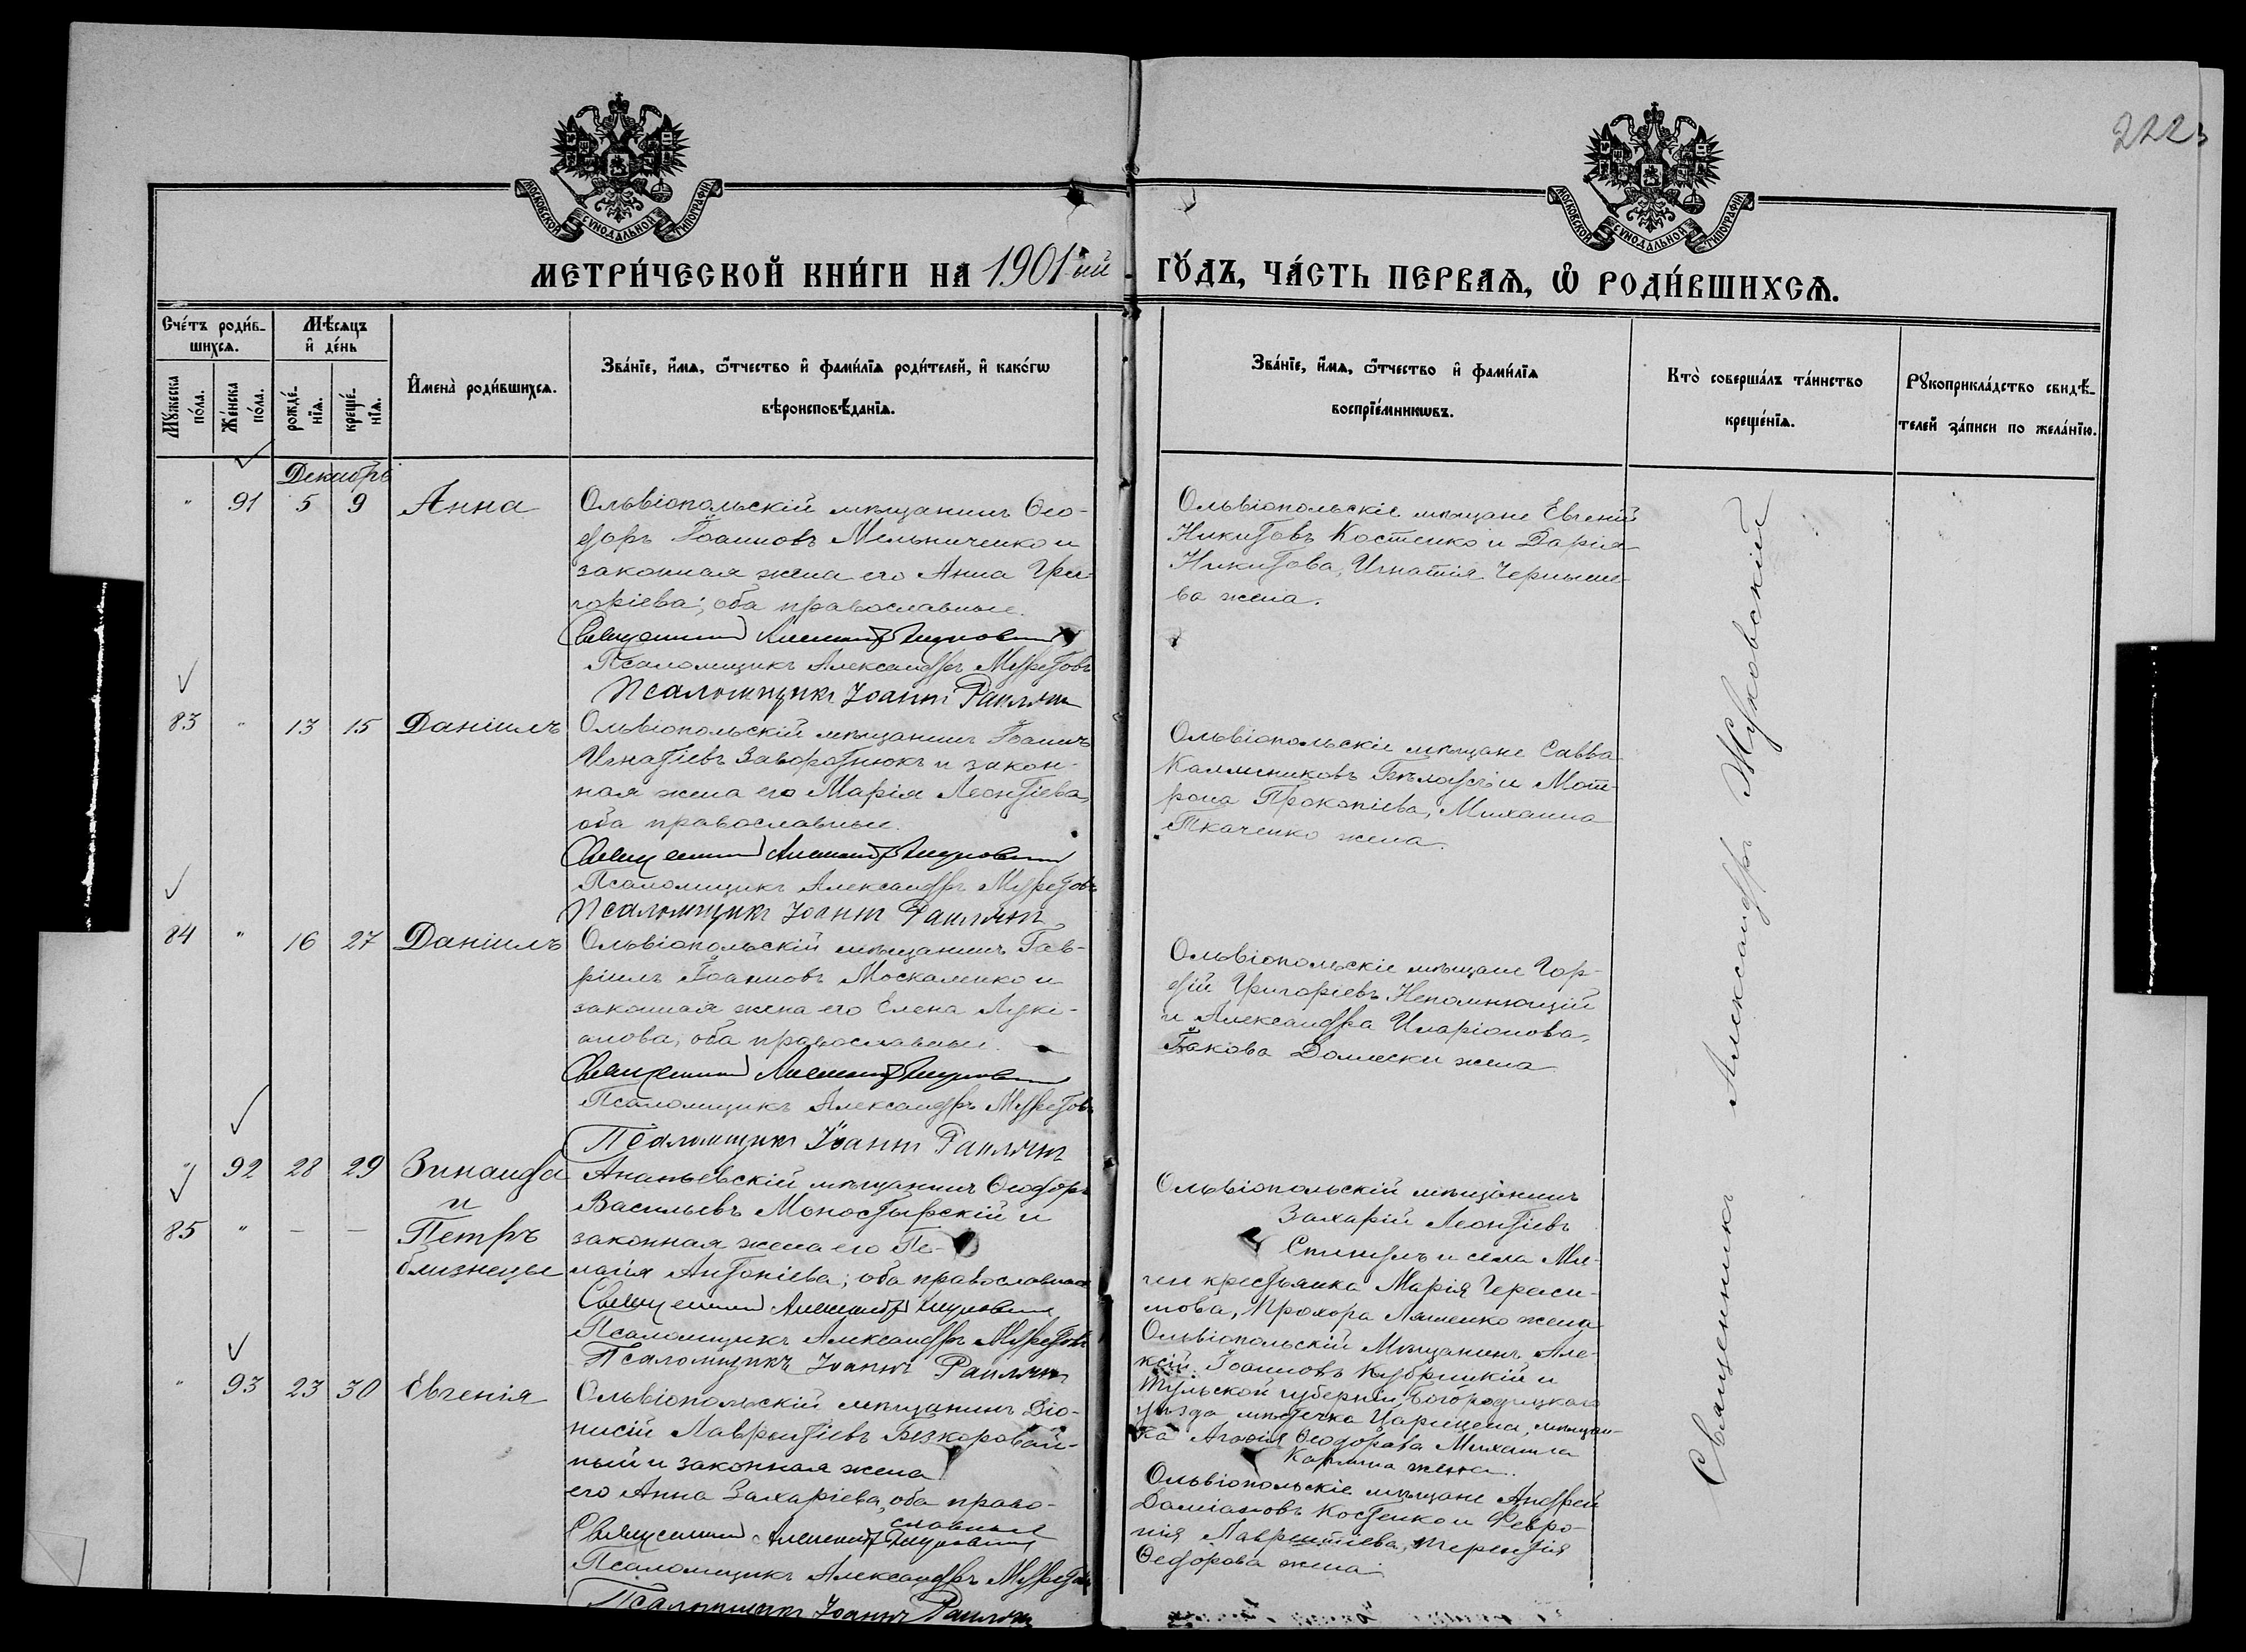 222
МОСКОВСКОЙ СѴНОДАЛЬНОЙ ТИПОГРАФІИ
МОСКОВСКОЙ СѴНОДАЛЬНОЙ ТИПОГРАФІИ
МЕТРИ́ЧЕСКОЙ КНИ́ГИ НА 1901-ый ГО́ДЪ, ЧА́СТЬ ПЕРВАЯ, Ѡ РОДИ́ВШИХСЯ.
Сче́тъ роди́в-
шихся.
Мѣ́сяцъ
и де́нь
Мꙋ́жеска
по́ла.
Же́нска
по́ла.
рожде́-
нїя.
креще́-
нїя.
Имена̀ роди́вшихся.
Зва́нїе, и́мя, ѻ́тчество и фами́лїя роди́телей, и како́гѡ
вѣроисповѣ́данїя.
Зва́нїе, и́мя, ѻ́тчество и фами́лїя
воспрїе́мникѡвъ.
Кто̀ соверша́лъ та́инство
креще́нїя.
Рꙋкоприкла́дство свидѣ́-
телей за́писи по жела́нїю.
Декабрь
" 91 5 9 Анна
Ольвіопольскій мѣщанинъ Ѳео-
доръ Іоанновъ Мельниченко и
законная жена его Анна Гри-
горіева; оба православные.
Священникъ Александръ Жуковскій
Псаломщикъ Александръ Муретовъ
Псаломщикъ Іоаннъ
Ольвіопольскіе мѣщане Евгеній
Никитовъ Костенко и Дарія
Никитова, Игнатія Черныше-
ва жена.
83 " 13 15 Даніилъ
Ольвіопольскій мѣщанинъ Іоаннъ
Игнатіевъ Заворотнюкъ и закон-
ная жена его Марія Леонтіева,
оба православные.
Священникъ Александръ Жуковскій
Псаломщикъ Александръ Муретовъ
Псаломщикъ Іоаннъ
Ольвіопольскіе мѣщане Савва
Каллиниковъ Бѣлоусъ и Мот-
рона Прокопіева, Михаила
Ткаченко жена.
84 " 16 27 Даніилъ
Ольвіопольскій мѣщанинъ Гав-
ріилъ Іоанновъ Москаленко и
законная жена его Елена Лукі-
анова; оба православные.
Священникъ Александръ Жуковскій
Псаломщикъ Александръ Муретовъ
Псаломщикъ Іоаннъ
Ольвіопольскіе мѣщане Гор-
дій Григоріевъ Непомнющій
и Александра Иларіонова,
Іакова жена
" 92 28 29 Зинаида
и
85 " — — Петръ
близнецы
Ананьевскій мѣщанинъ Ѳеодоръ
Васильевъ Моностырскій и
законная жена его Пе-
лагія Антоніева; оба православные
Священникъ Александръ Жуковскій
Псаломщикъ Александръ Муретовъ
Псаломщикъ Іоаннъ
Ольвіопольскій мѣщанинъ
Захарій Леонтіевъ
и села Ми-
геи крестьянка Марія Гераси-
мова, Прохора Ляшенко жена
Ольвіопольскій Мѣщанинъ Але-
ксій Іоанновъ и
Тульской губерніи, Богородицкаго
уѣзда мѣстечка мѣщан-
ка Агафія Ѳеодорова Михаила
жена.
" 93 23 30 Евгенія
Ольвіопольскій мѣщанинъ Діо-
нисій Лаврентіевъ Безкоровай-
ный и законная жена
его Анна Захаріева, оба право-
славные
Священникъ Александръ Жуковскій
Псаломщикъ Александръ Муретовъ
Псаломщикъ Іоаннъ
Ольвіопольскіе мѣщане Андрей
Даміановъ Костенко и Февро-
нія Лаврентіева, Терентія
Ѳедорова жена
Священникъ Александръ Жуковскій